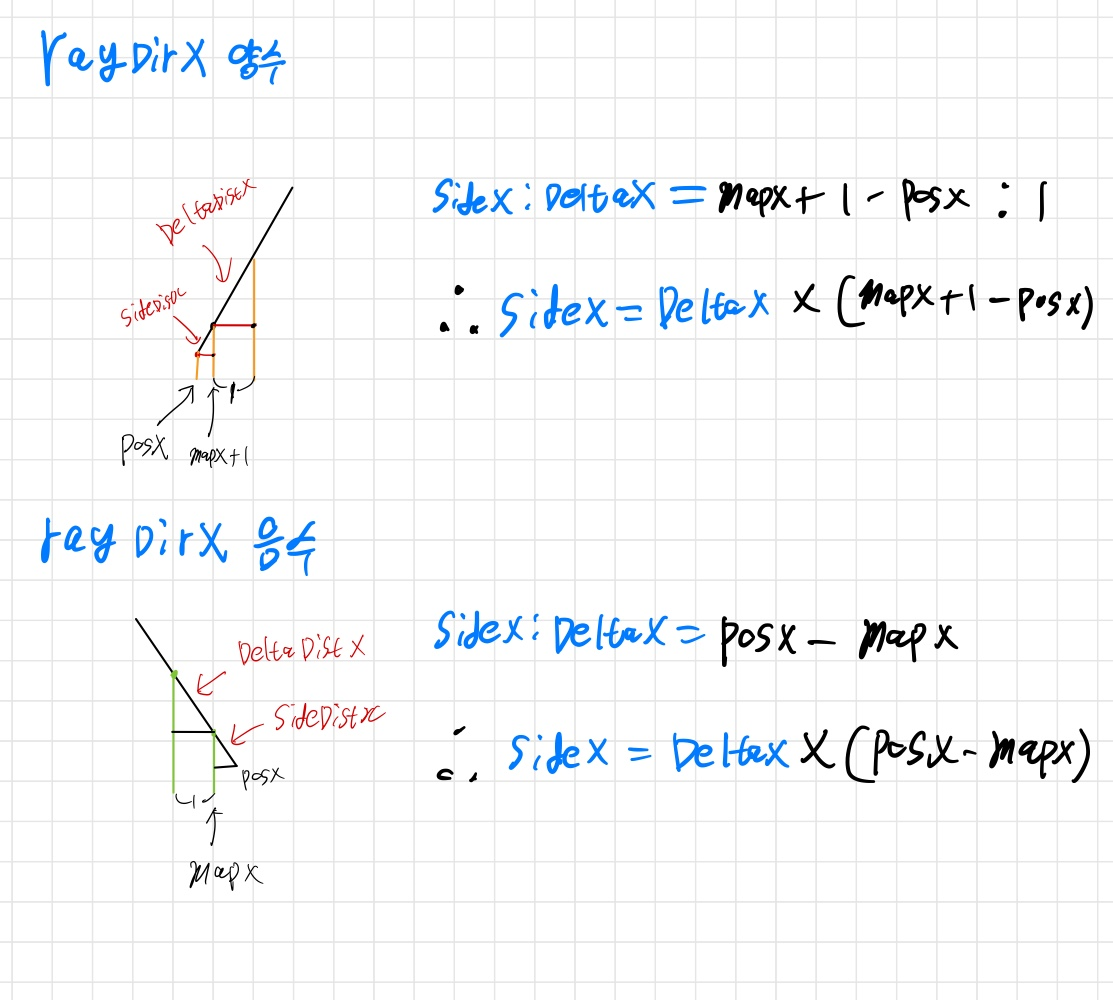 rayDirX 양수
DeltaDistX
SideDistX
PosX
mapX+1
1
SideX : DeltaX = mapX + 1 - posX : 1
∴ SideX = DeltaX × (mapX+1-posX)
rayDirX 음수
DeltaDistX
SideDistX
posX
1
mapX
SideX : DeltaX = posX - mapX
∴ SideX = DeltaX × (posX-mapX)